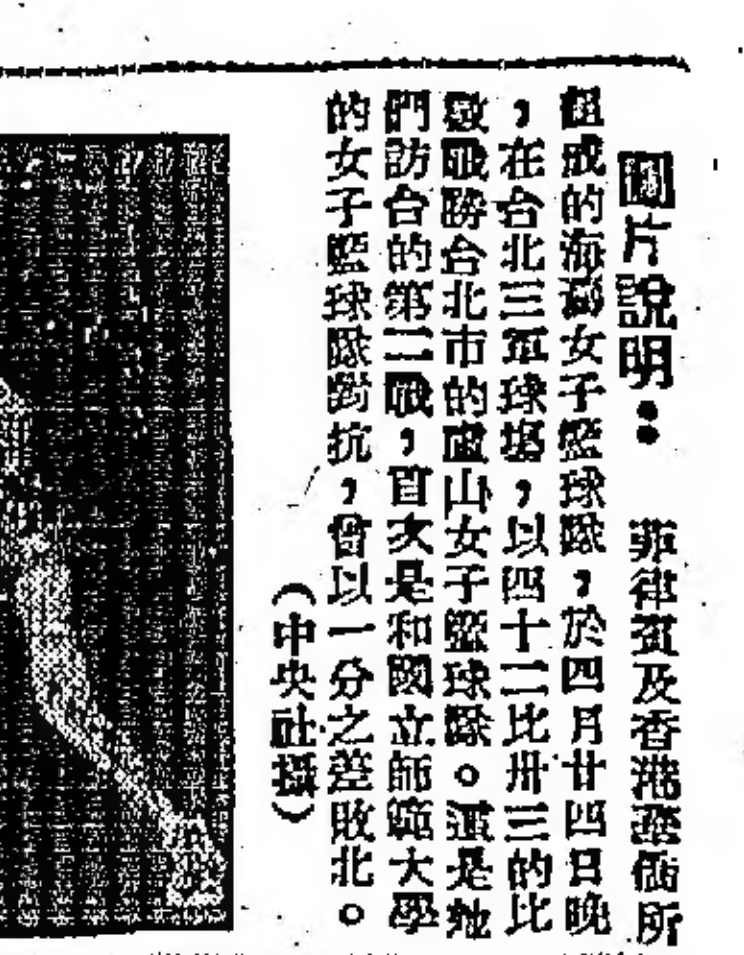 圖片說明：　菲律賓及香港華僑所
組成的海燕女子籃球隊，於四月廿四日晚
，在台北三軍球場，以四十二比卅三的比
數戰勝台北市的廬山女子籃球隊。這是她
們訪台的第二戰，首次是和國立師範大學
的女子籃球隊對抗，曾以一分之差敗北。
（中央社攝）